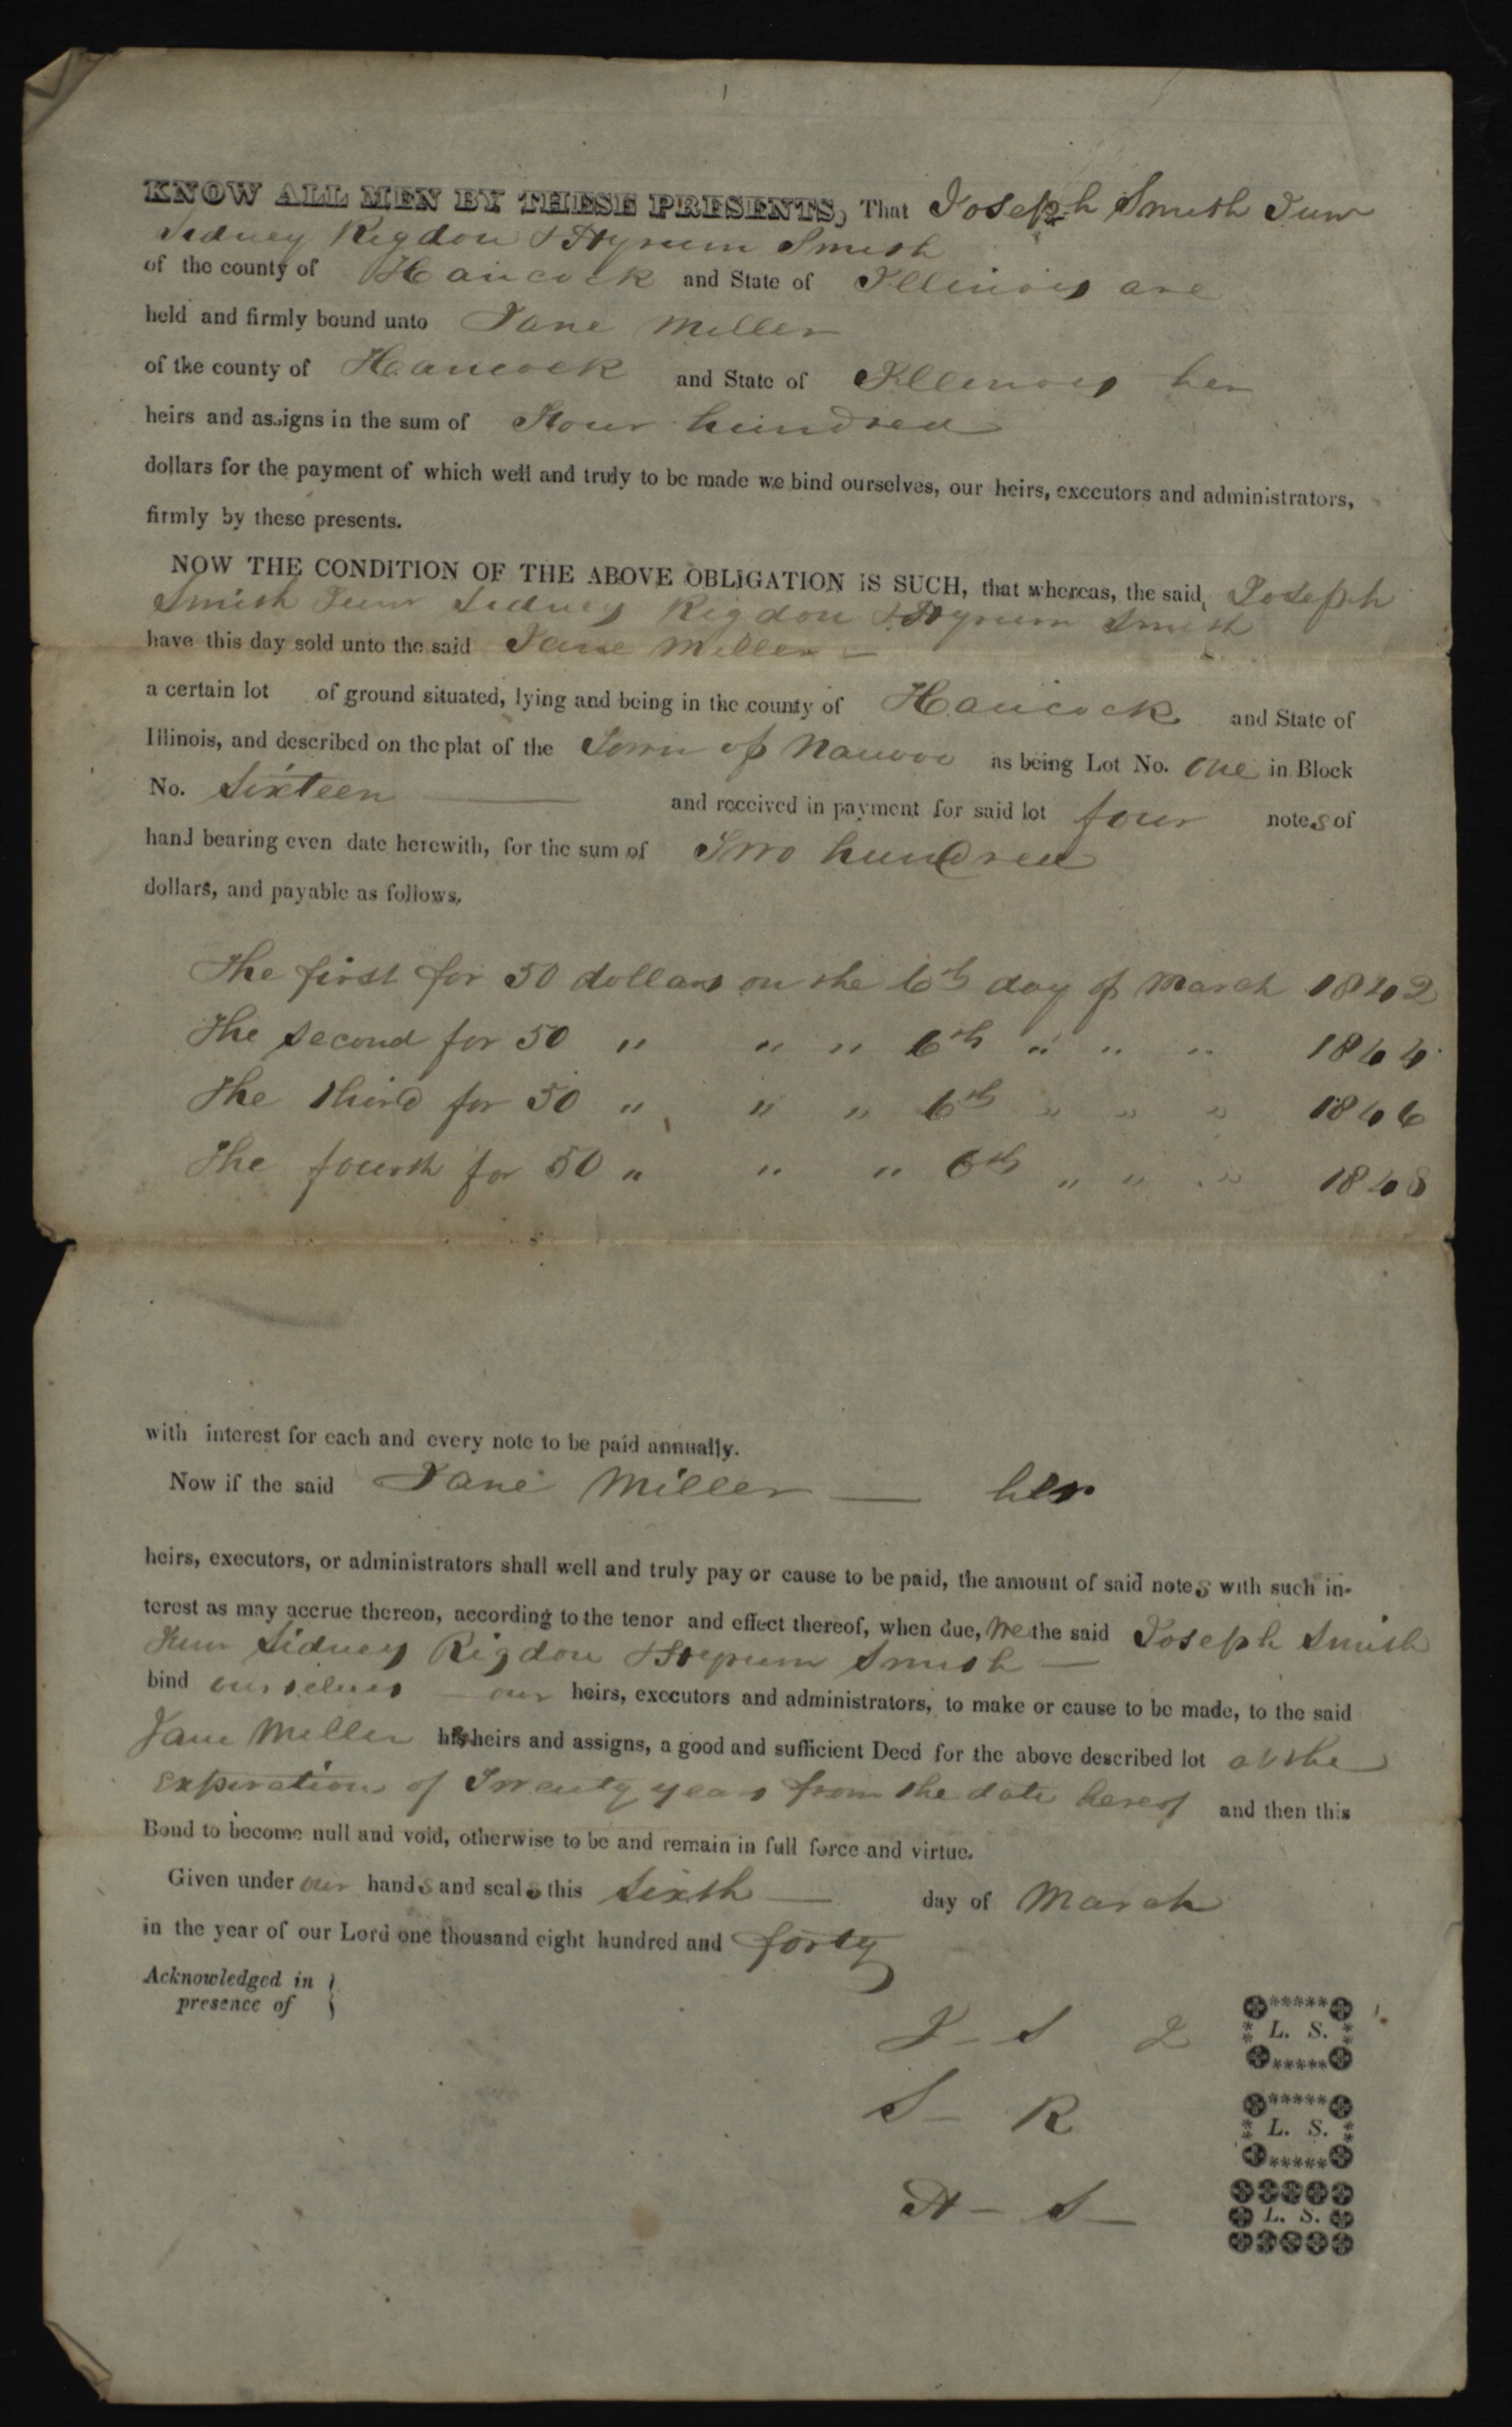 KNOW ALL MEN BY THESE PRESENTS, That Joseph Smith Junr
Sidney Rigdon & Hyrum Smith
of the county of Hancock and State of Illinois are
held and firmly bound unto Jane Miller
of the county of Hancock and State of Illinois her
heirs and assigns in the sum of Four hundred
dollars for the payment of which well and truly to be made we bind ourselves, our heirs, executors and administrators,
firmly by these presents.
NOW THE CONDITION OF THE ABOVE OBLIGATION IS SUCH, that whereas, the said, Joseph
Smith Junr Sidney Rigdon & Hyrum Smith
have this day sold unto the said Jane Miller —
a certain lot of ground situated, lying and being in the county of Hancock and State of
Illinois, and described on the plat of the Town of Nauvoo as being Lot No. one in Block
No. Sixteen — and received in payment for said lot four notes of
hand bearing even date herewith, for the sum of Two hundred
dollars, and payable as follows,
The first for 50 dollars on the 6th day of March 1842
The second for 50 " " " 6th " " " 1844
The third for 50 " " " 6th " " " 1846
The fourth for 50 " " " 6th " " " 1848
with interest for each and every note to be paid annually.
Now if the said Jane Miller — her
heirs, executors, or administrators shall well and truly pay or cause to be paid, the amount of said notes with such in-
terest as may accrue thereon, according to the tenor and effect thereof, when due, We the said Joseph Smith
Junr Sidney Rigdon & Hyrum Smith —
bind ourselves — our heirs, executors and administrators, to make or cause to be made, to the said
Jane Miller his heirs and assigns, a good and sufficient Deed for the above described lot at the
expiration of Twenty years from the date hereof and then this
Bond to become null and void, otherwise to be and remain in full force and virtue.
Given under our hands and seals this Sixth — day of March
in the year of our Lord one thousand eight hundred and forty
Acknowledged in }
presence of }
J – S J L. S.
S – R L. S.
H – S – L. S.